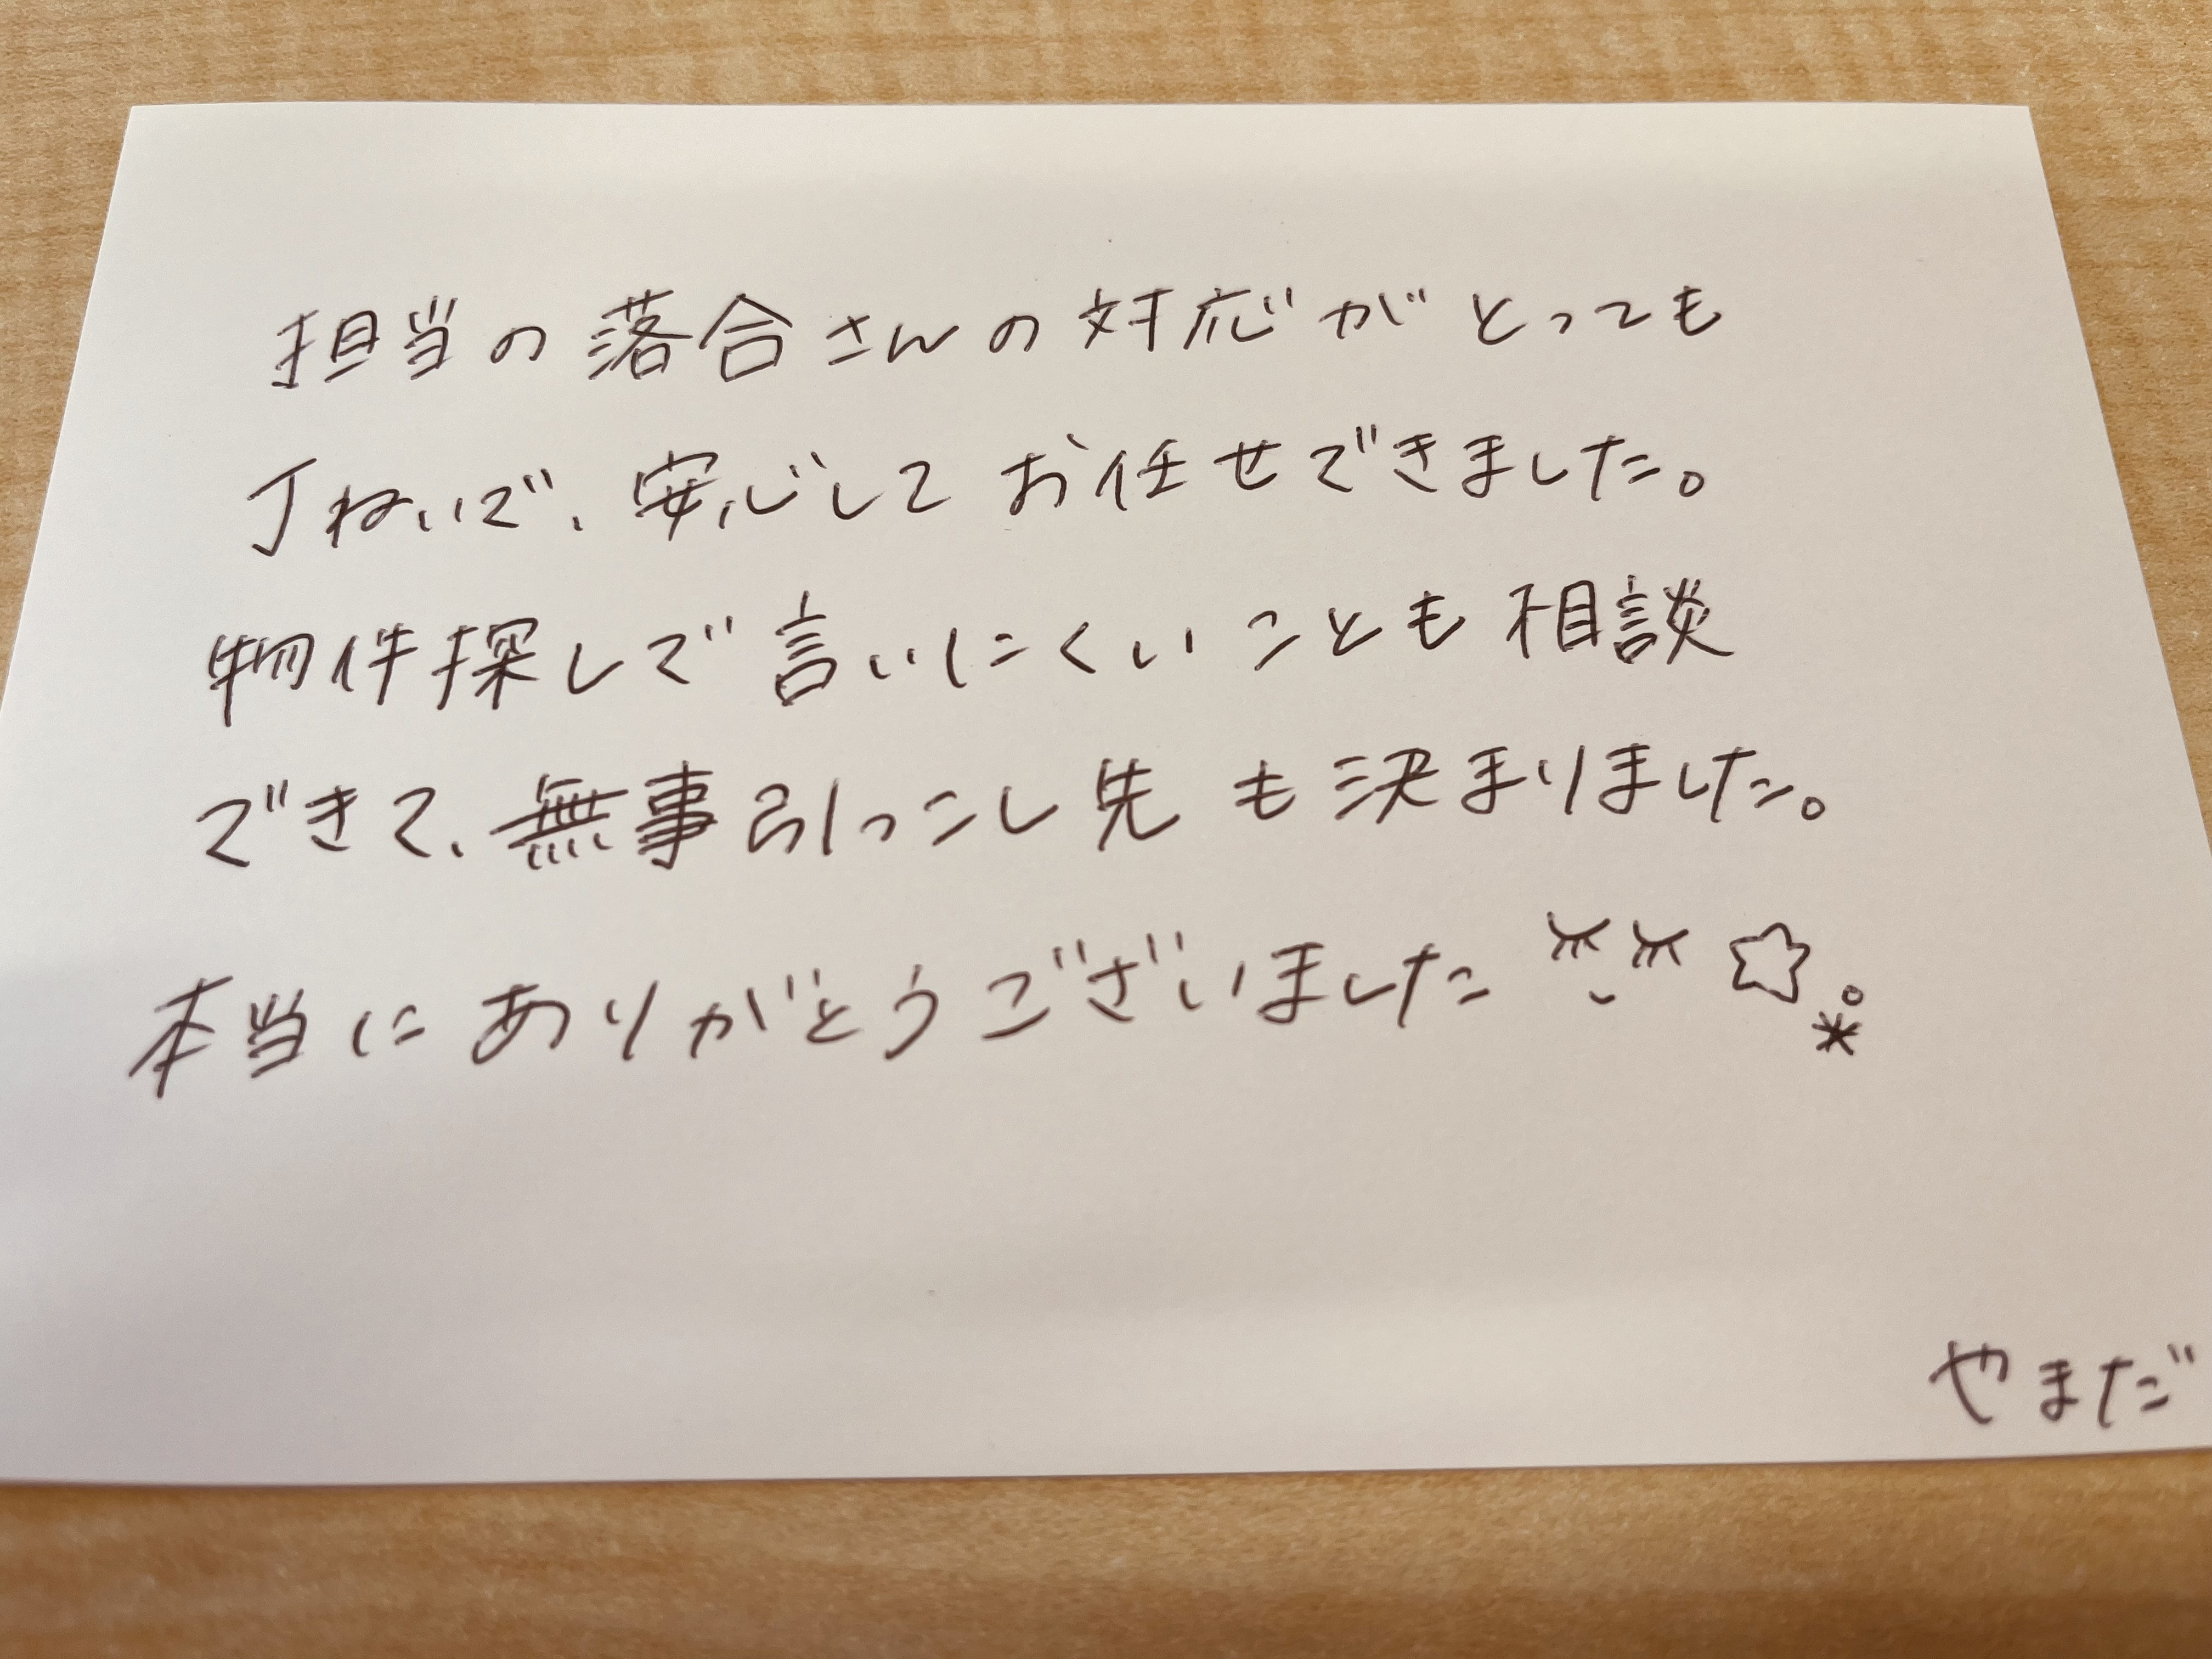 担当の落合さんの対応がとっても
丁ねいで、安心してお任せできました。
物件探しで言いにくいことも相談
できて、無事引っこし先も決まりました。
本当にありがとうございました ☆。*
やまだ